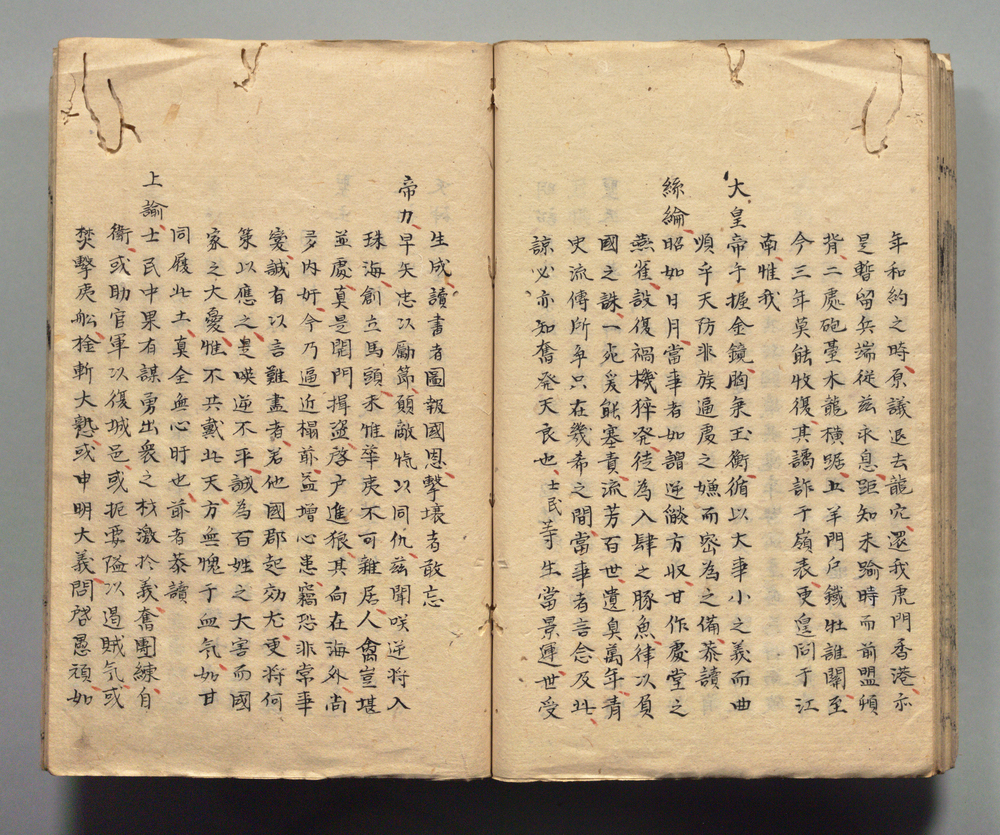 年和約之時原議退去龍穴還我虎門香港亦
是暫留兵端從兹永息距知未踰時而前盟頓
背二處砲臺木龍橫踞五羊門户鐵牡誰關至
今三年莫能收復其譎詐于嶺表更遑問于江
南惟我
大皇帝手握金鏡胸秉玉衡循以大事小之義而曲
順乎天防非族逼處之嫌而宻為之備恭讀
絲綸昭如日月當事者如謂逆燄方収甘作處堂之
燕雀設復禍機猝発徒為入肆之豚魚律以負
國之誅一死爰能塞責流芳百世遺臭萬年青
史流傳所爭只在幾希之間當事者言念及此
諒必亦知奮発天良也士民等生當景運世受
生成讀書者圖報國恩擊壤者敢忘
帝力早矢忠以勵節願敵愾以同仇兹聞咲逆将入
珠海創立馬頭未惟華夷不可雜居人禽豈堪
並處真是開門揖盗啓户進狼其向在海外尚
多内奸今乃逼近榻前益增心患竊恐非常事
變誠有以言難盡者若他國郡起効尤更将何
策以應之是咲逆不平誠為百姓之大害而國
家之大憂惟不共戴此天方無愧于血氣如甘
同履此土真全無心盱也前者恭讀
上諭士民中果有謀勇出衆之材激於義奮團練自
衛或助官軍以復城邑或扼要隘以遏賊気或
焚擊夷船拴斬大憝或申明大義問啓愚頑如